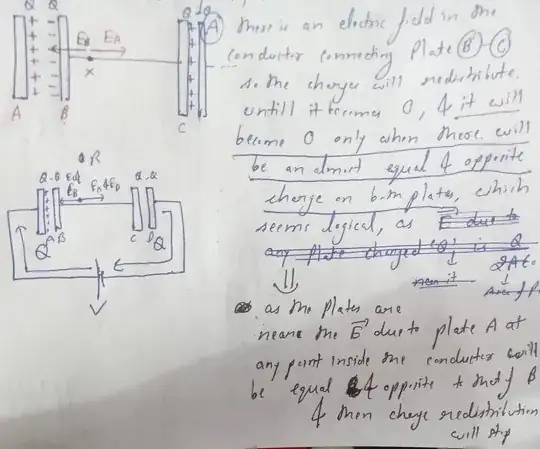 Q Q
Q Q
E_B E_A
x
A B
C
(A) There is an electric field in the
conductor connecting Plate (B)-(C)
so the charges will redistribute.
untill it becomes 0, & it will
become 0 only when there will
be an almost equal & opposite
charge on both plates, which
seems logical, as E due to
any plate charged 'Q' is Q
2Aε₀
near it
Area of
R
Q -Q Q -Q
E_B E_A & E_D
Q A B C D Q
V
as the plates are
near the E due to plate A at
any point inside the conductor will
be equal & opposite to that of B
& then charge redistribution
will stop